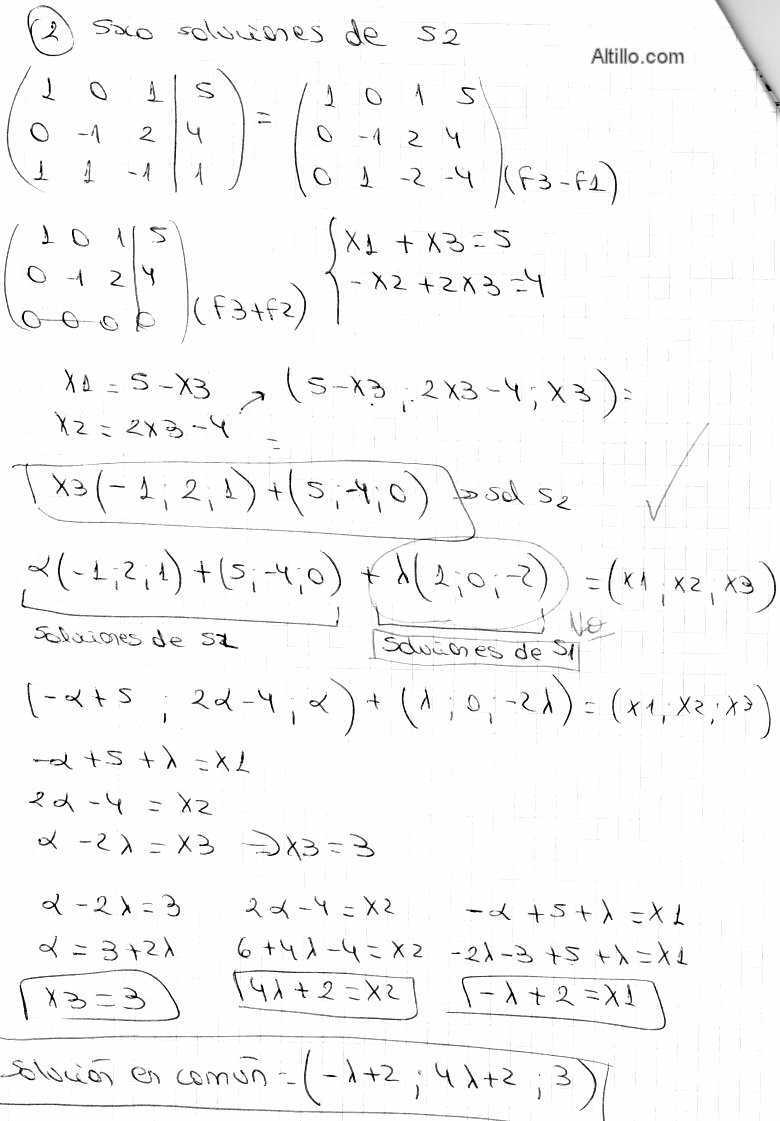 2 Saco soluciones de S2
Altillo.com
( 1 0 1 | 5 ) = ( 1 0 1 5 )
( 0 -1 2 | 4 ) ( 0 -1 2 4 )
( 1 1 -1 | 1 ) ( 0 1 -2 -4 ) (f3-f1)
( 1 0 1 | 5 ) { x1 + x3 = 5
( 0 -1 2 | 4 ) { -x2 + 2x3 = 4
( 0 0 0 | 0 ) (f3+f2)
x1 = 5-x3 → (5-x3 ; 2x3-4 ; x3) =
x2 = 2x3-4 =
x3(-1; 2; 1) + (5; -4; 0) → sol S2
α(-1; 2; 1) + (5; -4; 0) + λ(1; 0; -2) = (x1; x2; x3)
Soluciones de S2 Soluciones de S1 No
(-α+5 ; 2α-4 ; α) + (λ ; 0 ; -2λ) = (x1; x2; x3)
-α + 5 + λ = x1
2α - 4 = x2
α - 2λ = x3 ⇒ x3 = 3
α - 2λ = 3 2α - 4 = x2 -α + 5 + λ = x1
α = 3 + 2λ 6 + 4λ - 4 = x2 -2λ - 3 + 5 + λ = x1
x3 = 3 4λ + 2 = x2 -λ + 2 = x1
Solución en común = (-λ+2 ; 4λ+2 ; 3)